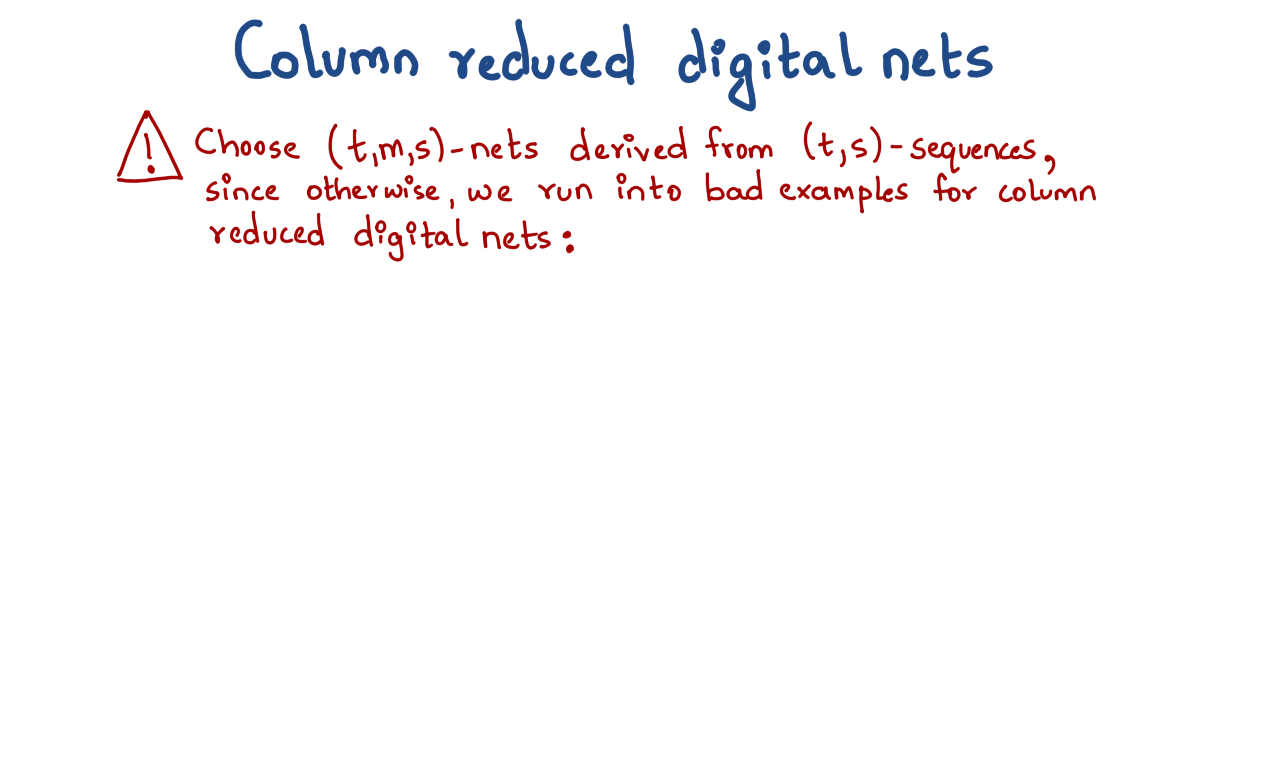 Column reduced digital nets
! Choose (t,m,s)-nets derived from (t,s)-sequences,
since otherwise, we run into bad examples for column
reduced digital nets: